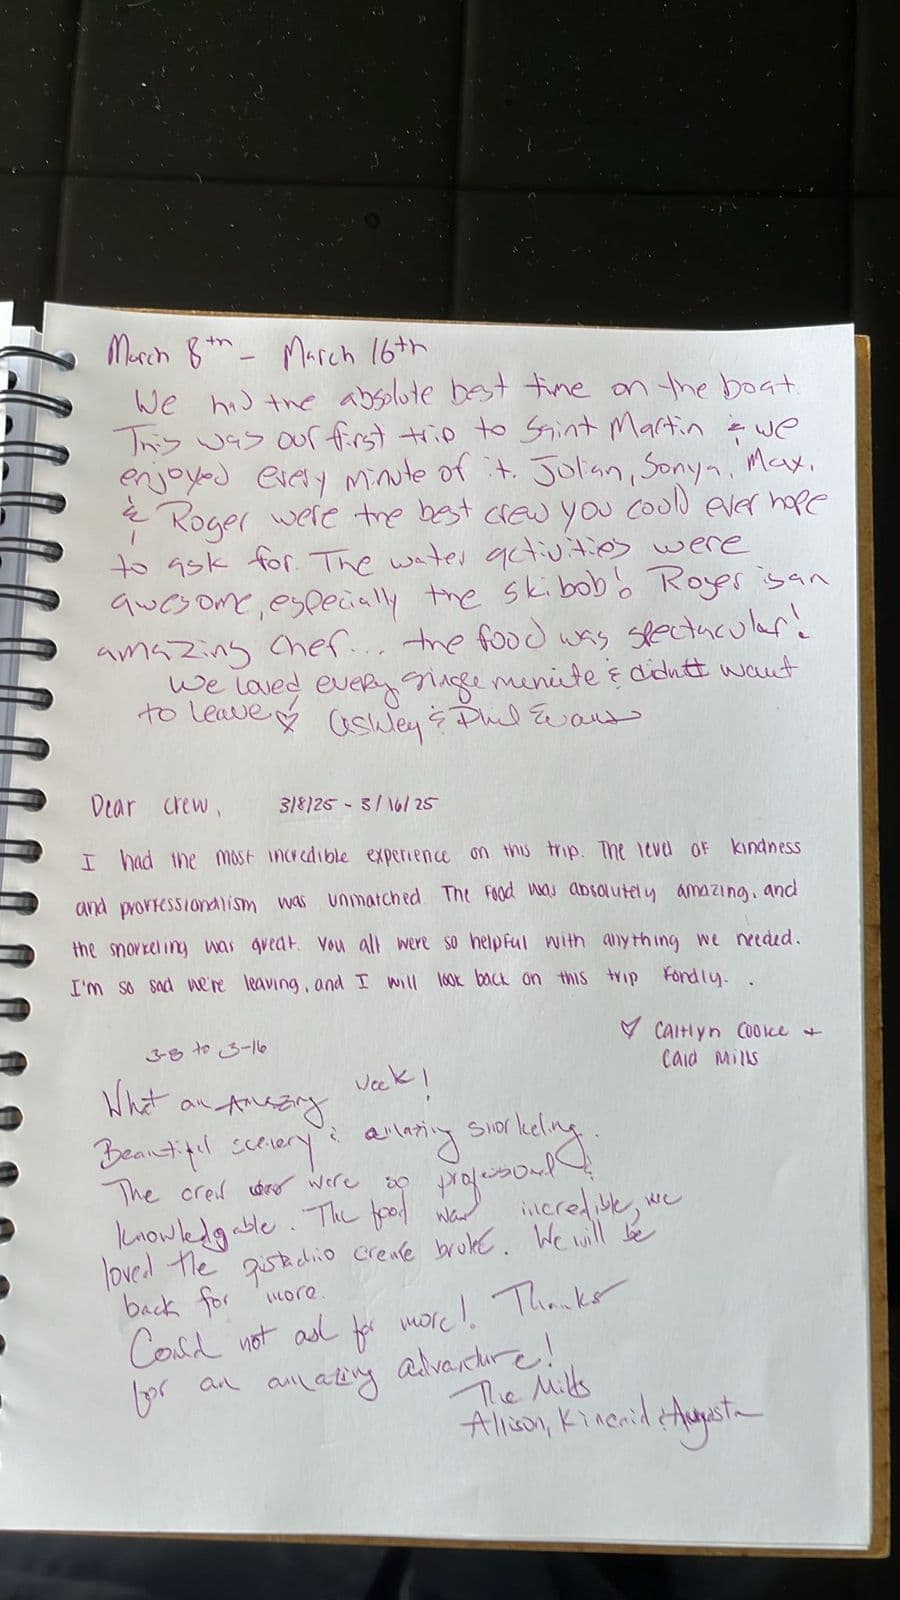 March 8th - March 16th
We had the absolute best time on the boat.
This was our first trip to Saint Martin & we
enjoyed every minute of it. Julian, Sonya, Max,
& Roger were the best crew you could ever hope
to ask for. The water activities were
awesome, especially the skibob! Roger is an
amazing chef... the food was spectacular!
We loved every single minute & didn't want
to leave! ♡ Ashley & Phil Evans
Dear crew, 3/8/25 - 3/16/25
I had the most incredible experience on this trip. The level of kindness
and proffessionalism was unmatched. The food was absolutely amazing, and
the snorkeling was great. You all were so helpful with anything we needed.
I'm so sad we're leaving, and I will look back on this trip fondly. .
♡ Caitlyn Cooke +
Caid Mills
3-8 to 3-16
What an Amazing week!
Beautiful scenery & amazing snorkeling.
The crew were so professional &
knowledgable. The food was incredible, we
loved the pistachio creme brule. We will be
back for more.
Could not ask for more! Thanks
for an amazing adventure!
The Mills
Allison, Kincaid & August